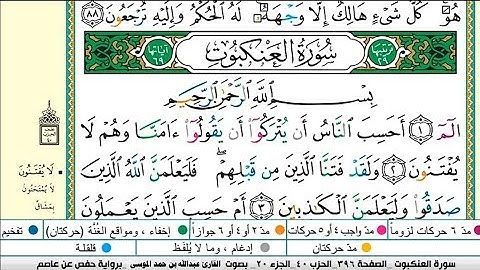 هُوَۚ كُلُّ شَيْءٍ هَالِكٌ إِلَّا وَجْهَهُۥۚ لَهُ ٱلْحُكْمُ وَإِلَيْهِ تُرْجَعُونَ ٨٨
ترتيبها ٢٩ سُورَةُ العَنكَبُوت آياتها ٦٩
بِسْمِ ٱللَّهِ ٱلرَّحْمَٰنِ ٱلرَّحِيمِ
الٓمٓ ١ أَحَسِبَ ٱلنَّاسُ أَن يُتْرَكُوٓا۟ أَن يَقُولُوٓا۟ ءَامَنَّا وَهُمْ لَا
يُفْتَنُونَ ٢ وَلَقَدْ فَتَنَّا ٱلَّذِينَ مِن قَبْلِهِمْۖ فَلَيَعْلَمَنَّ ٱللَّهُ ٱلَّذِينَ
صَدَقُوا۟ وَلَيَعْلَمَنَّ ٱلْكَٰذِبِينَ ٣ أَمْ حَسِبَ ٱلَّذِينَ يَعْمَلُونَ
لَا يُفْتَنُونَ
لَا يُمْتَحَنُونَ
بِمَشَاقّ
مدّ ٦ حركات لزوماً مدّ واجب ٤ أو ٥ حركات مدّ ٢ أو ٤ أو ٦ جوازاً إخفاء ، ومواقع الغُنَّة (حركتان) تفخيم
مدّ حركتان إدغام ، وما لا يُلفَظ قلقلة
سورة العنكبوت _ الصفحة ٣٩٦_ الحزب ٤٠_ الجزء ٢٠ _ بصوت القارئ عبدالله بن حمد الموسى _ برواية حفص عن عاصم